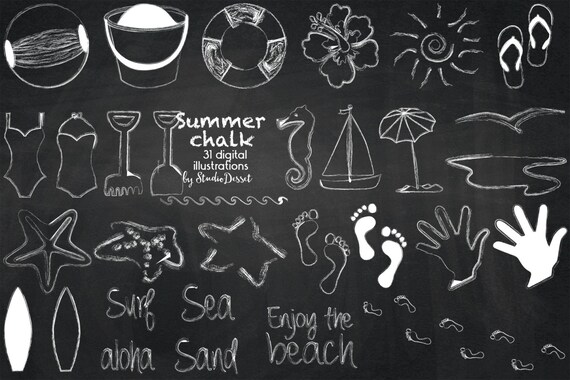 Summer
chalk
31 digital
illustrations
by StudioDesset
Surf
Sea
aloha
Sand
Enjoy the
beach